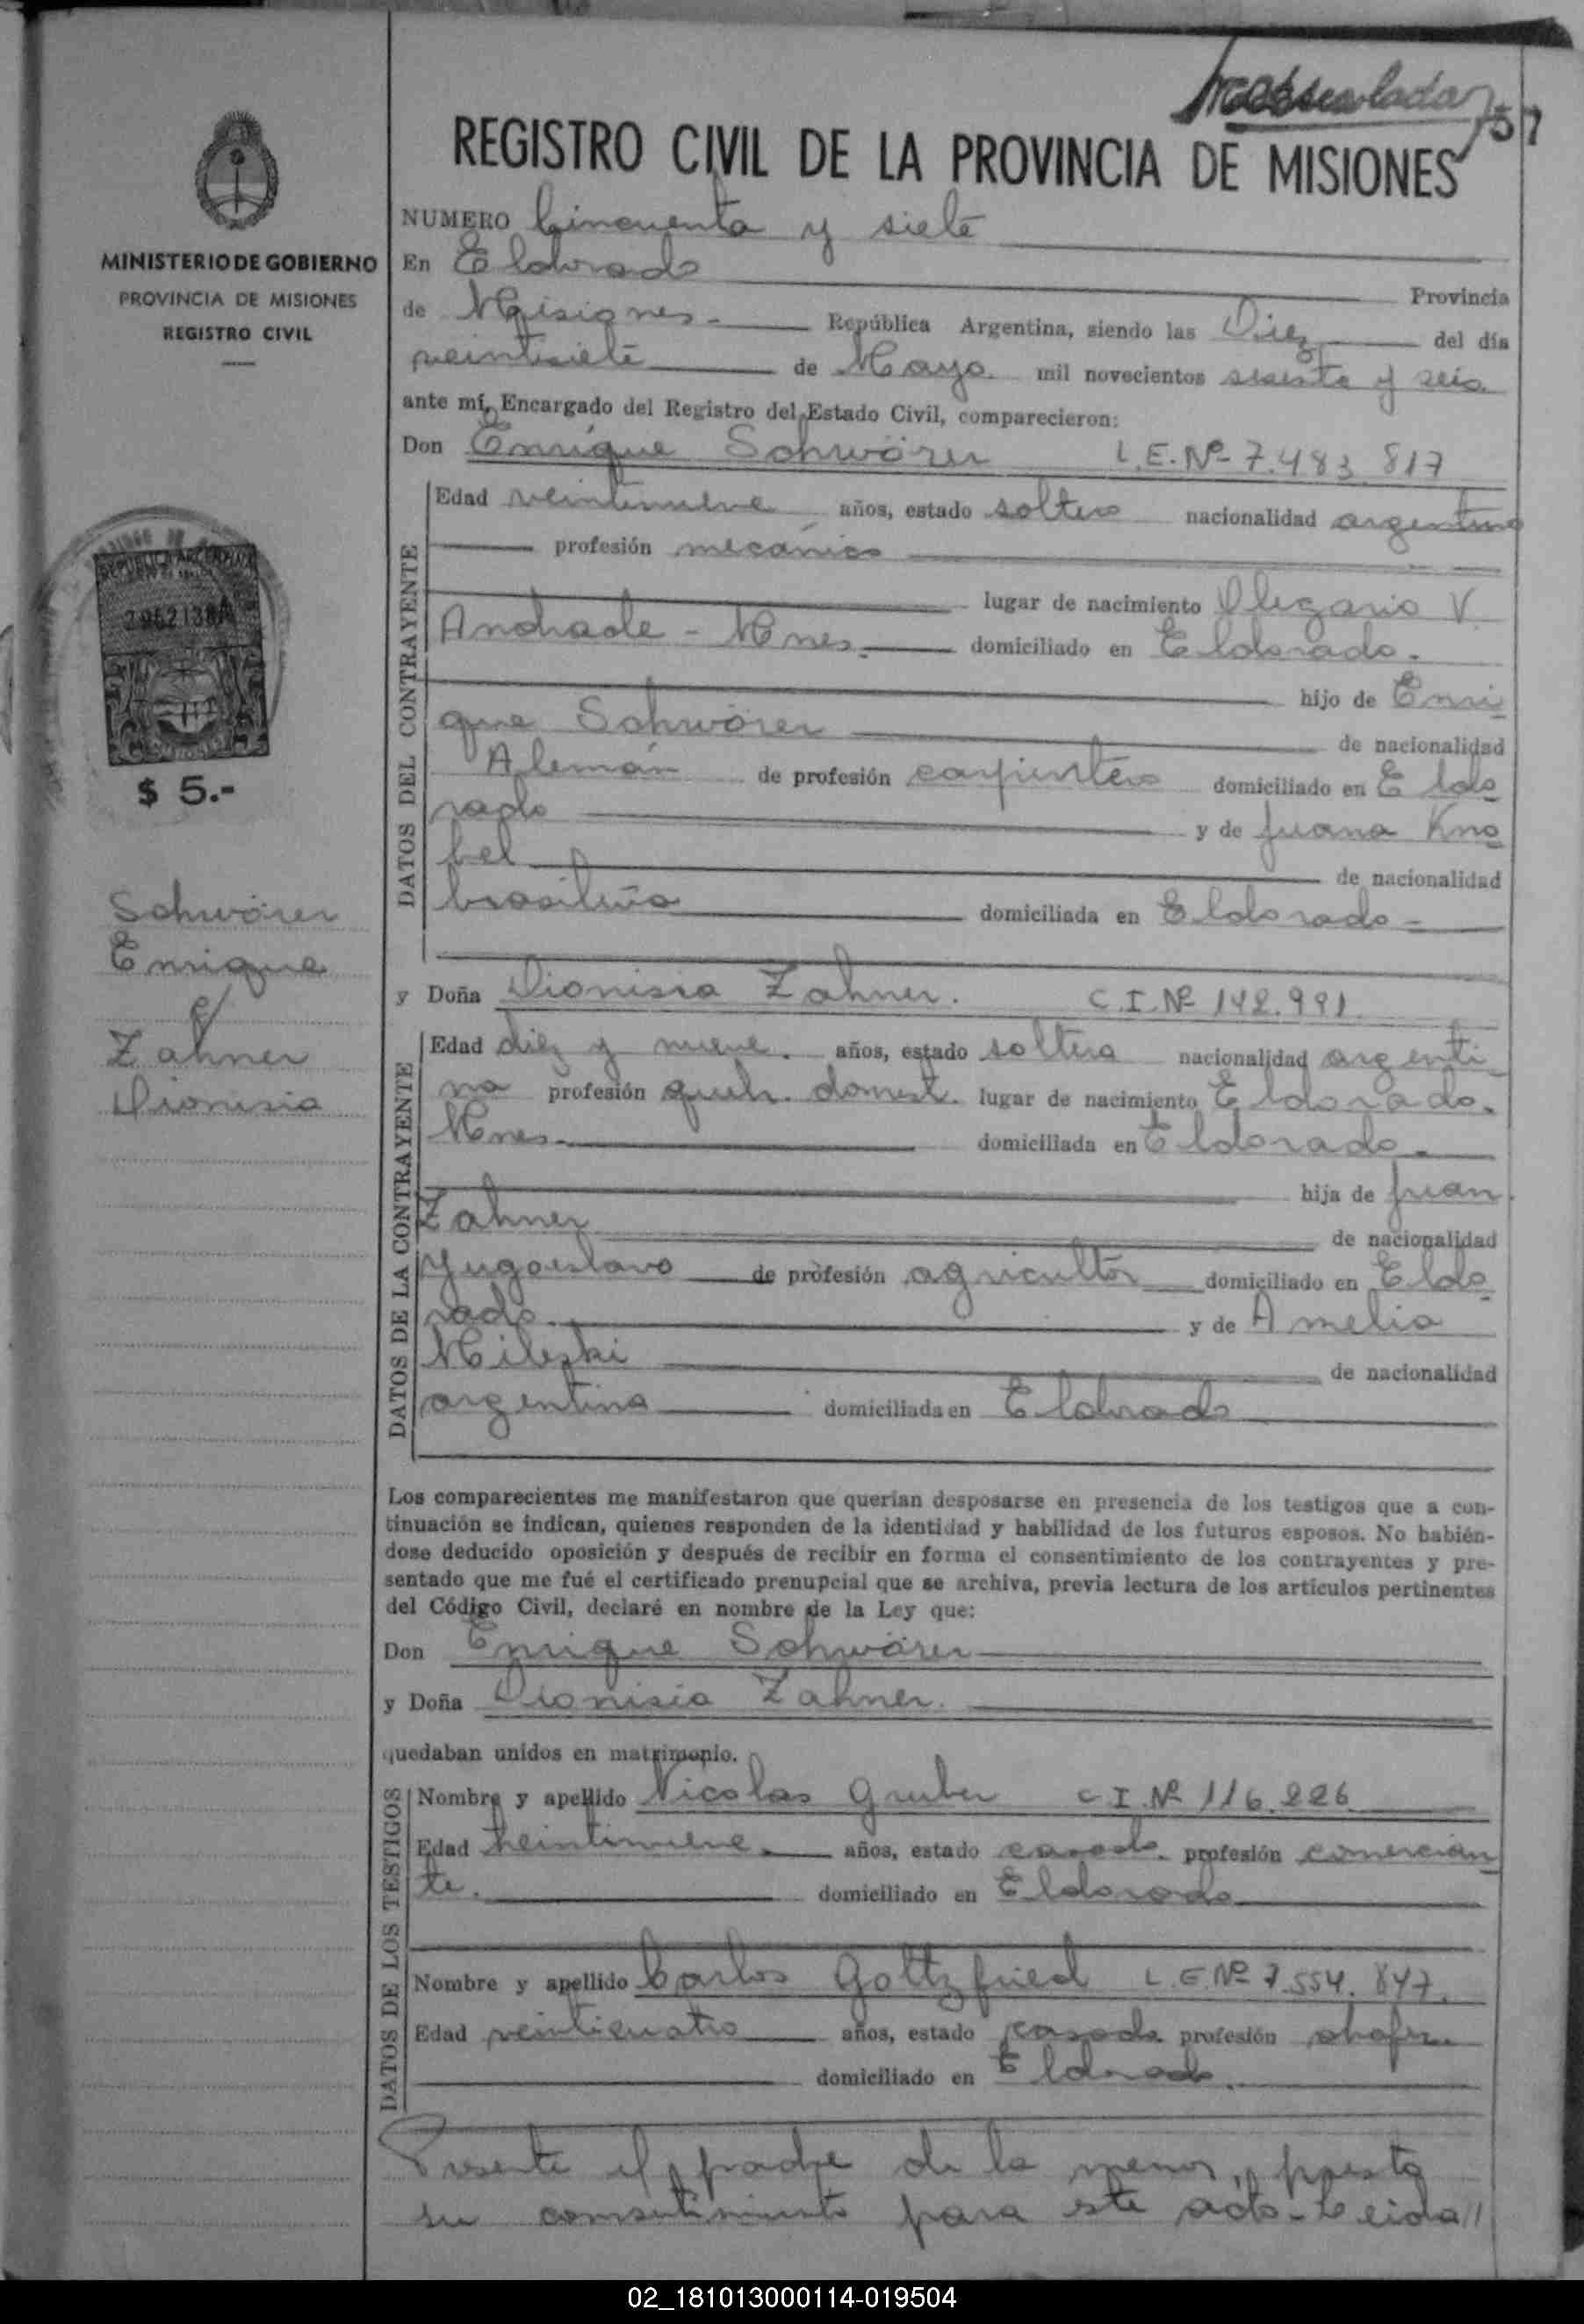 57
REGISTRO CIVIL DE LA PROVINCIA DE MISIONES
MINISTERIO DE GOBIERNO
PROVINCIA DE MISIONES
REGISTRO CIVIL
REPUBLICA ARGENTINA
$ 5.-
Schwörer
Enrique
c/
Zahner
Dionisia
NUMERO Cincuenta y siete
En Eldorado Provincia
de Misiones.- República Argentina, siendo las Diez del día
veintisiete de Mayo. mil novecientos sesenta y seis
ante mí, Encargado del Registro del Estado Civil, comparecieron:
Don Enrique Schwörer L.E.Nº 7.483.817
DATOS DEL CONTRAYENTE
Edad veintinueve años, estado soltero nacionalidad argentino
profesión mecánico
lugar de nacimiento Olegario V.
Andrade - Mnes. domiciliado en Eldorado.
hijo de Enri
que Schwörer de nacionalidad
Alemán de profesión carpintero domiciliado en Eldo
rado y de Juana Kno
bel de nacionalidad
brasileña domiciliada en Eldorado -
y Doña Dionisia Zahner. C.I.Nº 142.991.
DATOS DE LA CONTRAYENTE
Edad diez y nueve. años, estado soltera nacionalidad argenti
na profesión queh. domest. lugar de nacimiento Eldorado.
Mnes.- domiciliada en Eldorado.
hija de Juan
Zahner de nacionalidad
Yugoeslavo de profesión agricultor domiciliado en Eldo
rado. y de Amelia
Mileski de nacionalidad
argentina domiciliada en Eldorado
Los comparecientes me manifestaron que querían desposarse en presencia de los testigos que a con-
tinuación se indican, quienes responden de la identidad y habilidad de los futuros esposos. No habién-
dose deducido oposición y después de recibir en forma el consentimiento de los contrayentes y pre-
sentado que me fué el certificado prenupcial que se archiva, previa lectura de los artículos pertinentes
del Código Civil, declaré en nombre de la Ley que:
Don Enrique Schwörer
y Doña Dionisia Zahner.
quedaban unidos en matrimonio.
DATOS DE LOS TESTIGOS
Nombre y apellido Nicolas Gruber C.I.Nº 116.226
Edad veintinueve. años, estado casado. profesión comercian
te. domiciliado en Eldorado
Nombre y apellido Carlos Goltzfried L.E.Nº 7.554.847.
Edad veinticuatro años, estado casado profesión chofer
domiciliado en Eldorado.
Presente el padre de la menor, presta
su consentimiento para este acto.- Leida//
02_181013000114-019504